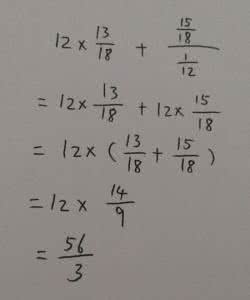 12 × 13/18 + (15/18)/(1/12)
= 12 × 13/18 + 12 × 15/18
= 12 × (13/18 + 15/18)
= 12 × 14/9
= 56/3